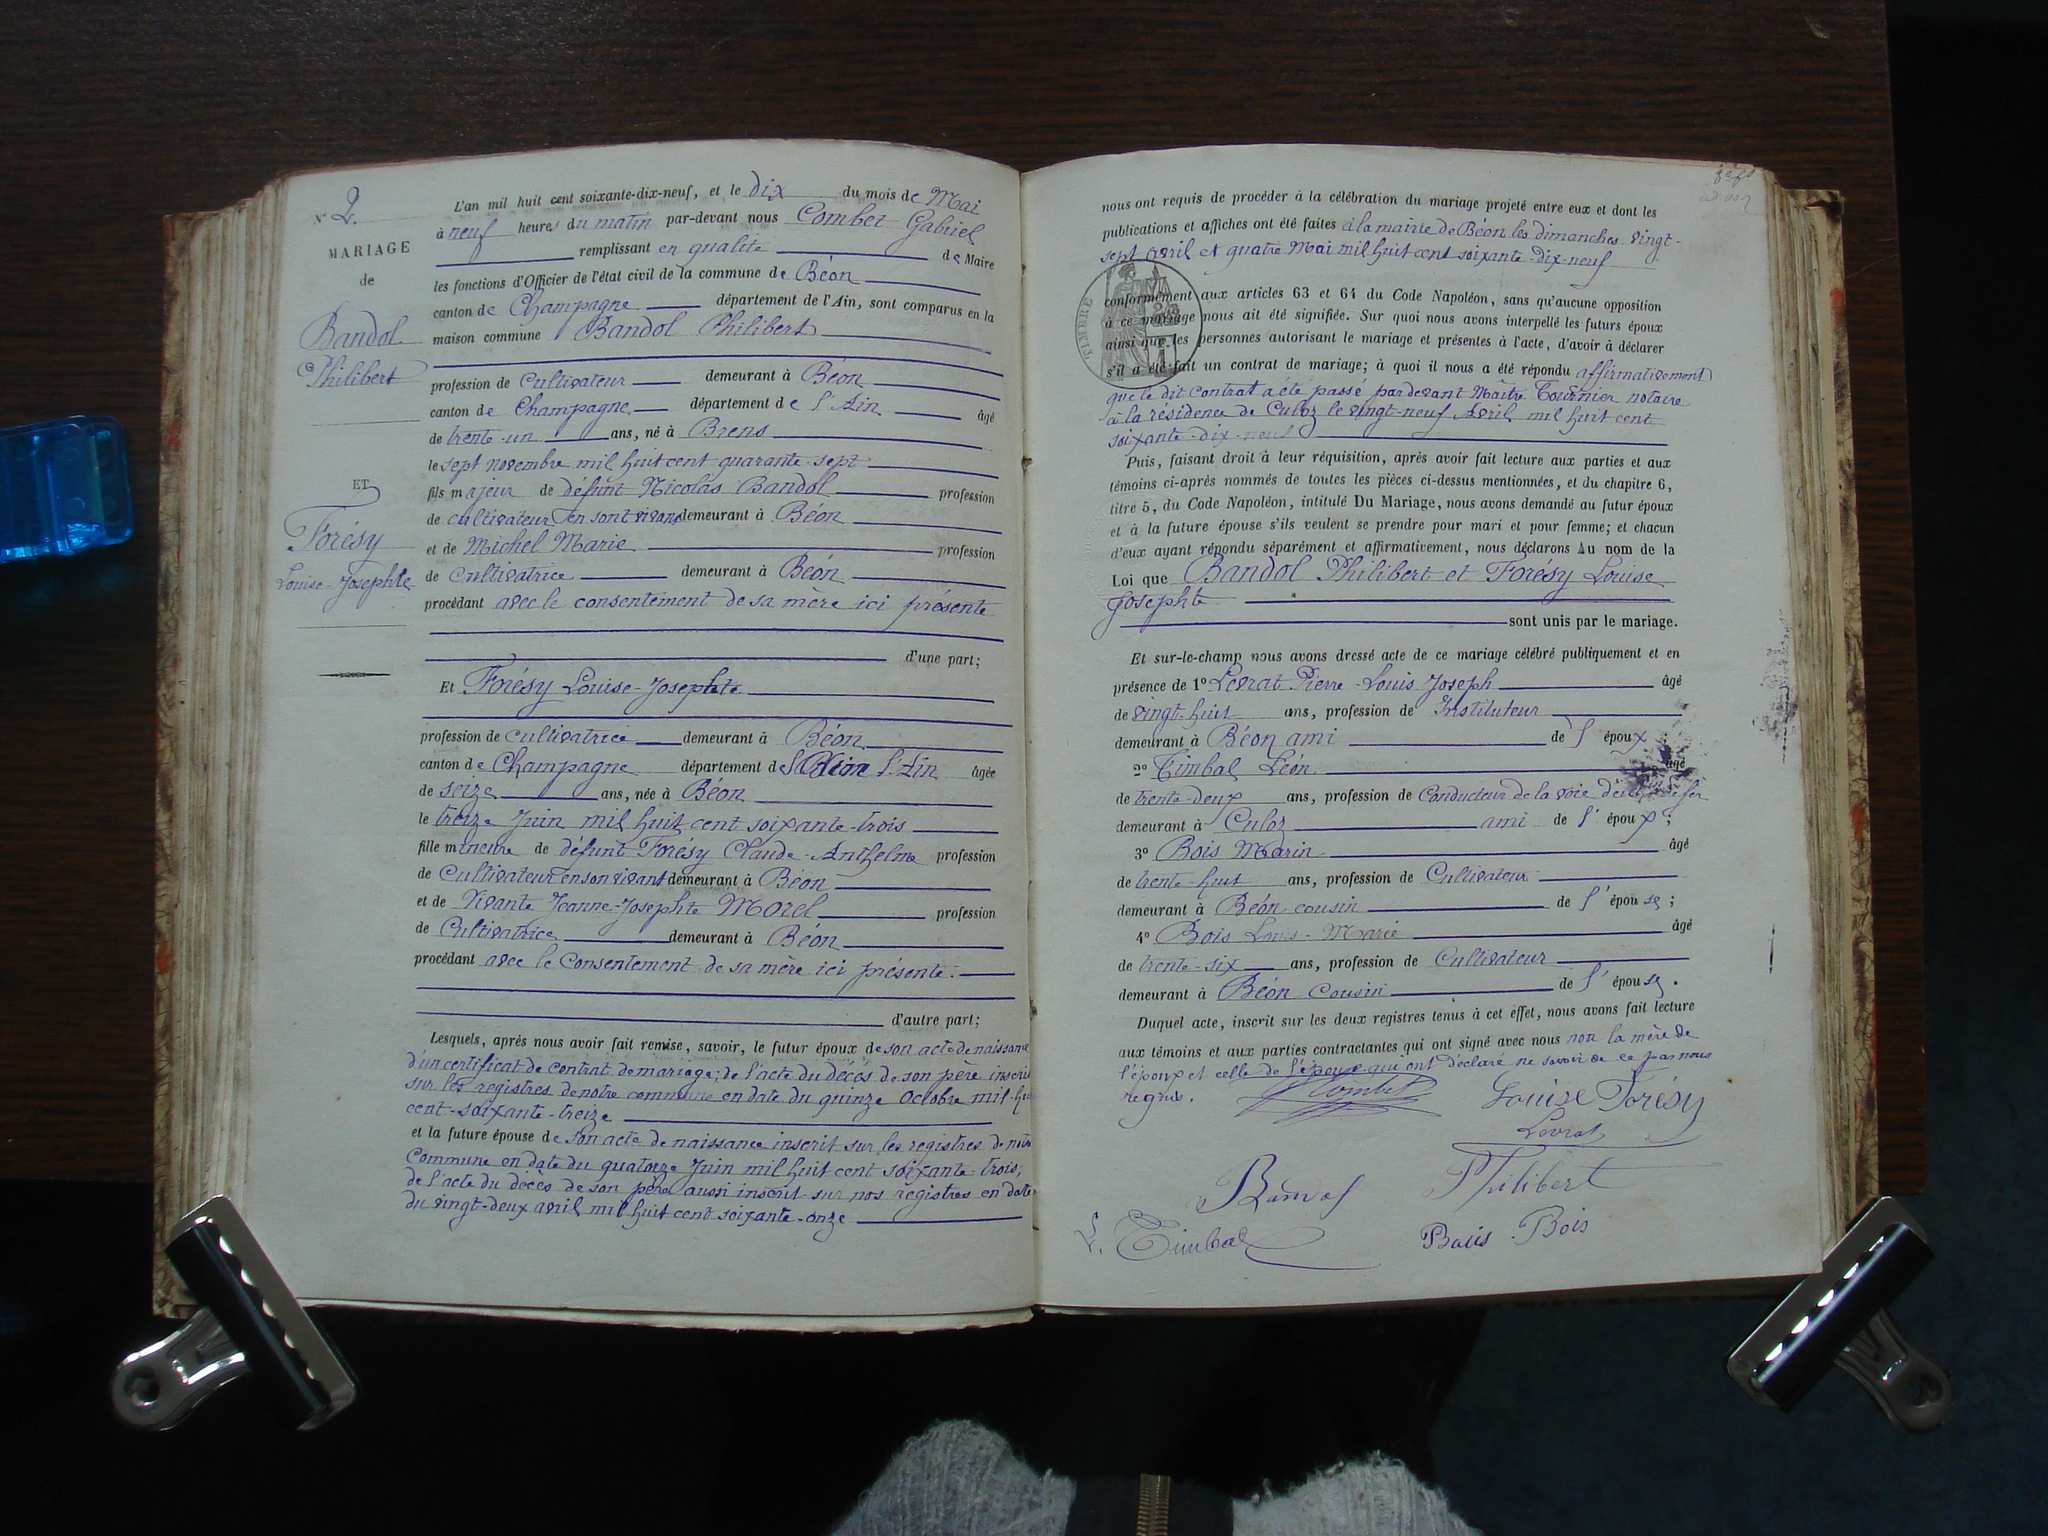 N° 2.
MARIAGE
de
Bandol
Philibert
ET
Forésy
Louise-Josephte
L'an mil huit cent soixante-dix-neuf, et le dix du mois de Mai
à neuf heures du matin par-devant nous Combet Gabriel
remplissant en qualité de Maire
les fonctions d'Officier de l'état civil de la commune de Béon
canton de Champagne département de l'Ain, sont comparus en la
maison commune Bandol Philibert
profession de Cultivateur demeurant à Béon
canton de Champagne département de l'Ain âgé
de trente-un ans, né à Brens
le sept novembre mil huit cent quarante-sept
fils majeur de défunt Nicolas Bandol profession
de cultivateur en son vivant demeurant à Béon
et de Michel Marie profession
de Cultivatrice demeurant à Béon
procédant avec le consentement de sa mère ici présente
d'une part;
Et Forésy Louise-Josephte
profession de cultivatrice demeurant à Béon
canton de Champagne département de l'Ain âgée
de seize ans, née à Béon
le treize Juin mil huit cent soixante-trois
fille mineure de défunt Forésy Claude-Anthelme profession
de Cultivateur en son vivant demeurant à Béon
et de Vivante Jeanne-Josephte Morel profession
de Cultivatrice demeurant à Béon
procédant avec le Consentement de sa mère ici présente.
d'autre part;
Lesquels, après nous avoir fait remise, savoir, le futur époux de son acte de naissance
d'un certificat de contrat de mariage; de l'acte du décès de son père inscrit
sur les registres de notre commune en date du quinze Octobre mil-huit
cent-soixante-treize
et la future épouse de son acte de naissance inscrit sur les registres de notre
Commune en date du quatorze Juin mil huit cent soixante-trois;
de l'acte du décès de son père aussi inscrit sur nos registres en date
du vingt-deux avril mil huit cent soixante-onze
nous ont requis de procéder à la célébration du mariage projeté entre eux et dont les
publications et affiches ont été faites à la mairie de Béon les dimanches vingt-
sept avril et quatre Mai mil huit cent soixante-dix-neuf
TIMBRE
conformément aux articles 63 et 64 du Code Napoléon, sans qu'aucune opposition
à ce mariage nous ait été signifiée. Sur quoi nous avons interpellé les futurs époux
ainsi que les personnes autorisant le mariage et présentes à l'acte, d'avoir à déclarer
s'il a été fait un contrat de mariage; à quoi il nous a été répondu affirmativement
que le dit Contrat a été passé pardevant Maître Tournier notaire
à la résidence de Culoz le vingt-neuf Avril mil huit cent
soixante-dix-neuf
Puis, faisant droit à leur réquisition, après avoir fait lecture aux parties et aux
témoins ci-après nommés de toutes les pièces ci-dessus mentionnées, et du chapitre 6,
titre 5, du Code Napoléon, intitulé Du Mariage, nous avons demandé au futur époux
et à la future épouse s'ils veulent se prendre pour mari et pour femme; et chacun
d'eux ayant répondu séparément et affirmativement, nous déclarons Au nom de la
Loi que Bandol Philibert et Forésy Louise
Josephte
sont unis par le mariage.
Et sur-le-champ nous avons dressé acte de ce mariage célébré publiquement et en
présence de 1° Levrat Pierre-Louis Joseph âgé
de vingt-huit ans, profession de Instituteur
demeurant à Béon ami de l'époux ;
2° Timbal Léon âgé
de trente-deux ans, profession de Conducteur de la voie de fer
demeurant à Culoz ami de l'époux ;
3° Bois Marin âgé
de trente-huit ans, profession de Cultivateur
demeurant à Béon cousin de l'épouse ;
4° Bois Louis-Marie âgé
de trente-six ans, profession de Cultivateur
demeurant à Béon Cousin de l'épouse .
Duquel acte, inscrit sur les deux registres tenus à cet effet, nous avons fait lecture
aux témoins et aux parties contractantes qui ont signé avec nous non la mère de
l'époux et celle de l'épouse qui ont déclaré ne savoir de ce par nous
requis.
Combet
Louise Forésy
Levrat
Bandol Philibert
L. Timbal
Bois Bois